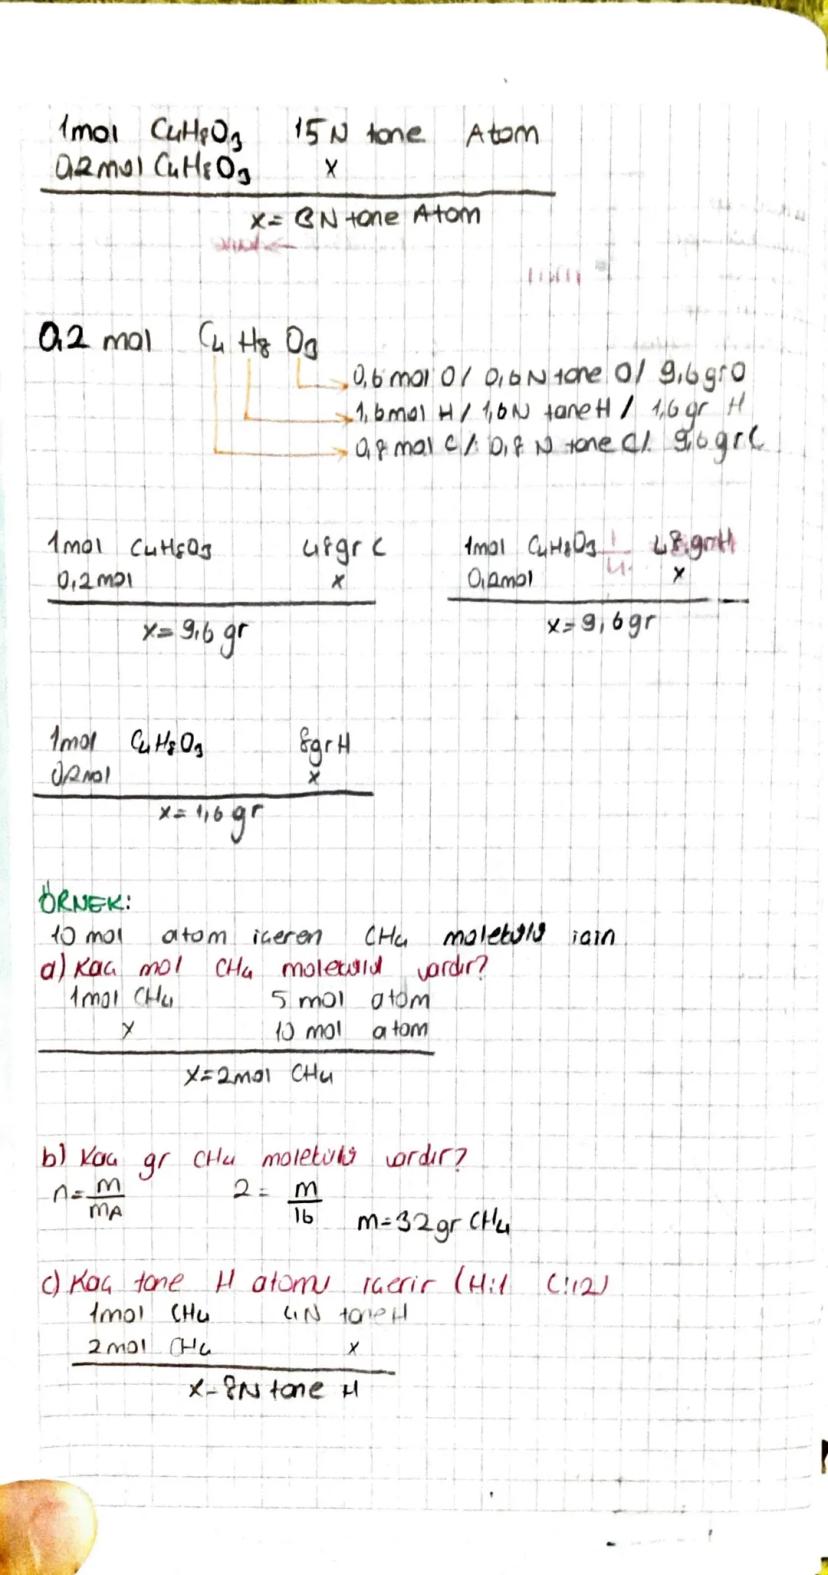 1mol C4H8O3 15N tane Atom
0,2mol C4H8O3 x
x = 3N tane Atom
0,2 mol C4 H8 O3
0,6 mol O / 0,6N tane O / 9,6 gr O
1,6mol H / 1,6N tane H / 1,6 gr H
0,8 mol C / 0,8 N tane C / 9,6 gr C
1mol C4H8O3 48gr C
0,2mol x
x = 9,6 gr
1mol C4H8O3 48 gr
0,2mol x
x = 9,6 gr
1mol C4H8O3 8gr H
0,2mol x
x = 1,6 gr
ÖRNEK:
10 mol atom içeren CH4 molekülü için
a) Kaç mol CH4 molekülü vardır?
1mol CH4 5 mol atom
x 10 mol atom
x = 2mol CH4
b) Kaç gr CH4 molekülü vardır?
n = m/mA 2 = m/16 m = 32gr CH4
c) Kaç tane H atomu içerir (H:1 C:12)
1mol CH4 4N tane H
2mol CH4 x
x = 8N tane H